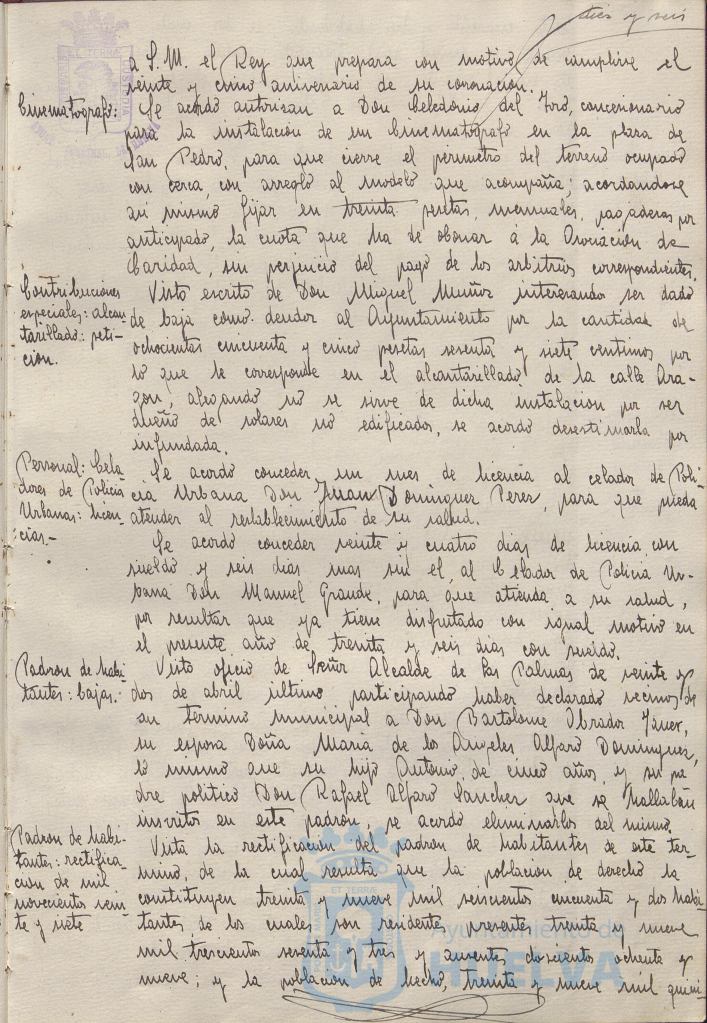 diez y seis
a S.M. el Rey que prepara con motivo de cumplirse el
veinte y cinco aniversario de su coronacion.
Cinematografo:
Se acordó autorizar a Don Celedonio del Toro, concesionario
para la instalacion de un Cinematografo en la plaza de
San Pedro, para que cierre el perimetro del terreno ocupado
con cerca, con arreglo al modelo que acompaña; acordandose
asi mismo fijar en treinta pesetas, mensuales, pagaderas por
anticipado, la cuota que ha de abonar á la Asociación de
Caridad, sin perjuicio del pago de los arbitrios correspondientes.
Contribuciones
especiales: alcan-
tarillado: peti-
cion.
Visto escrito de Don Miguel Muñoz interesando ser dado
de baja como deudor al Ayuntamiento por la cantidad de
ochocientas cincuenta y cinco pesetas sesenta y siete centimos por
lo que le corresponde en el alcantarillado de la calle Ara-
gon, alegando no se sirve de dicha instalacion por ser
dueño de solares no edificados, se acordo desestimarla por
infundada.
Personal: Cela-
dores de Policia
Urbana: licen-
cias.-
Se acordo conceder un mes de licencia al celador de Poli-
cia Urbana Don Juan Dominguez Perez, para que pueda
atender al restablecimiento de su salud.
Se acordo conceder veinte y cuatro dias de licencia con
sueldo y seis dias mas sin el, al Celador de Policia Ur-
bana Don Manuel Grande, para que atienda a su salud,
por resultar que ya tiene disfrutado con igual motivo en
el presente año de treinta y seis dias con sueldo.
Padron de habi-
tantes: bajas.-
Visto oficio de Señor Alcalde de Las Palmas de veinte y
dos de abril último participando haber declarado vecinos de
su termino municipal a Don Bartolome Obrador
su esposa Doña Maria de los Angeles Alfaro Dominguez,
lo mismo que su hijo Antonio, de cinco años, y su pa-
dre politico Don Rafael Alfaro Sanchez que se hallaban
inscritos en este padrón, se acordo eliminarlos del mismo.
Padron de habi-
tantes: rectifica-
cion de mil
novecientos vein-
te y siete
Vista la rectificacion del padron de habitantes de este ter-
mino, de la cual resulta que la poblacion de derecho la
constituyen treinta y nueve mil seiscientos cincuenta y dos habi-
tantes, de los cuales son residentes presentes treinta y nueve
mil trescientos sesenta y tres y ausentes doscientos ochenta y
nueve; y la poblacion de hecho, treinta y nueve mil quini-
Ayuntamiento de
HUELVA